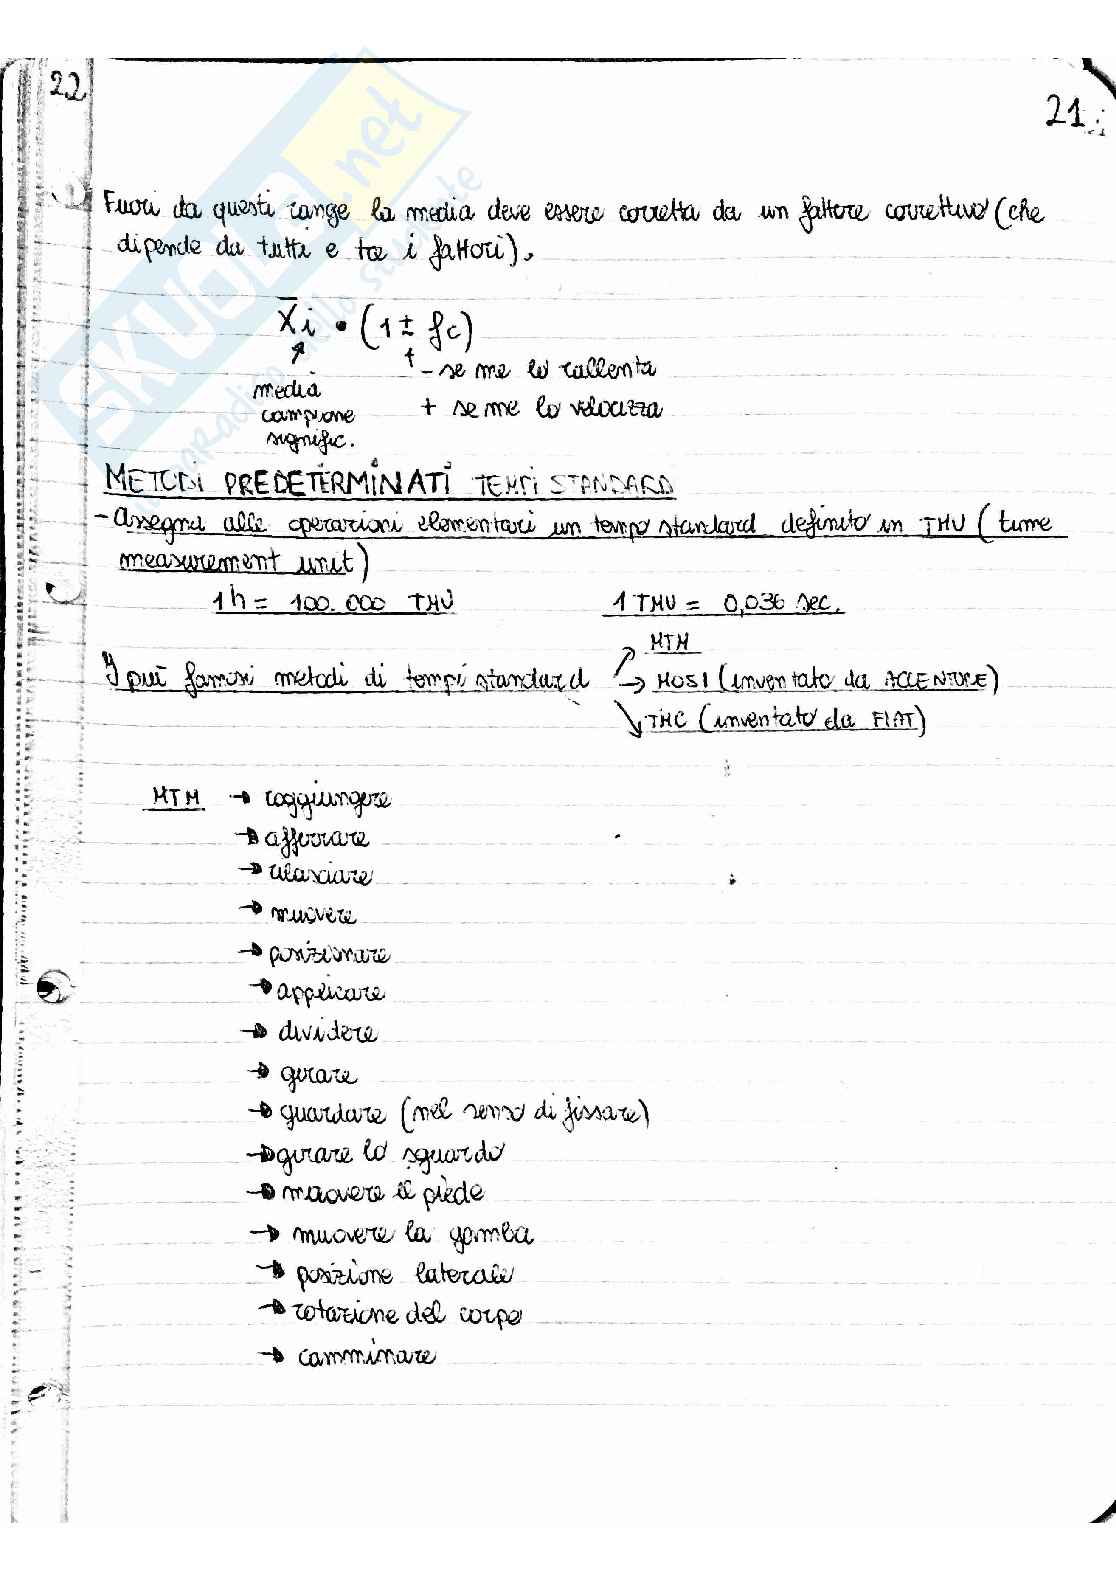 22
21
Fuori da questi range la media deve essere corretta da un fattore correttivo (che
dipende da tutti e tre i fattori).
X̄i • (1 ± fc)
- se me lo rallenta
media
campione
signific.
+ se me lo velocizza
METODI PREDETERMINATI TEMPI STANDARD
- Assegna alle operazioni elementari un tempo standard definito in TMU (time
measurement unit)
1h = 100.000 TMU 1 TMU = 0,036 sec.
MTM
I più famosi metodi di tempi standard → MOST (inventato da ACCENTURE)
TMC (inventato da FIAT)
MTM → raggiungere
→ afferrare
→ rilasciare
→ muovere
→ posizionare
→ applicare
→ dividere
→ girare
→ guardare (nel senso di fissare)
→ girare lo sguardo
→ muovere il piede
→ muovere la gamba
→ posizione laterale
→ rotazione del corpo
→ camminare
SKUOLA.net
il paradiso dello studente